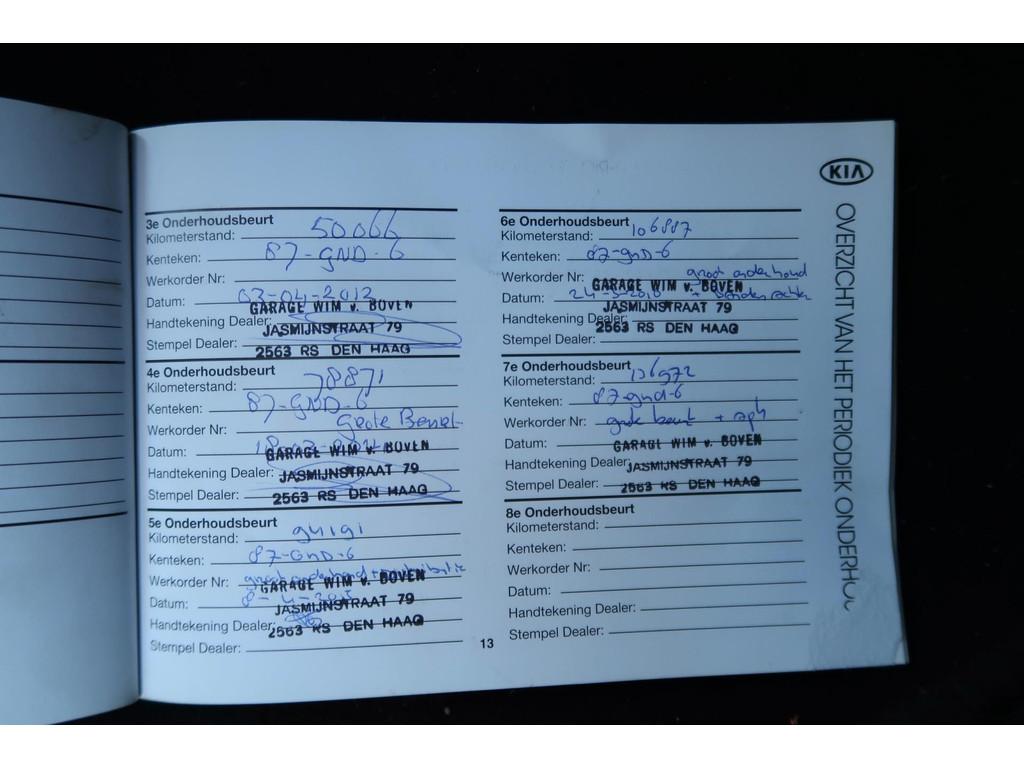 KIA
OVERZICHT VAN HET PERIODIEK ONDERHOU
3e Onderhoudsbeurt
Kilometerstand: 50066
Kenteken: 87-GND-6
Werkorder Nr:
Datum: 03-04-2012
GARAGE WIM v. BOVEN
Handtekening Dealer:
JASMIJNSTRAAT 79
Stempel Dealer:
2563 RS DEN HAAG
4e Onderhoudsbeurt
Kilometerstand: 78871
Kenteken: 87-GND-6
Werkorder Nr: Grote
Datum:
GARAGE WIM v. BOVEN
Handtekening Dealer:
JASMIJNSTRAAT 79
Stempel Dealer:
2563 RS DEN HAAG
5e Onderhoudsbeurt
Kilometerstand: 94191
Kenteken: 87-GND-6
Werkorder Nr: groot onderhoud +
GARAGE WIM v. BOVEN
Datum: 8-4-2015
JASMIJNSTRAAT 79
Handtekening Dealer:
2563 RS DEN HAAG
Stempel Dealer:
6e Onderhoudsbeurt
Kilometerstand: 106887
Kenteken: 87-gnd-6
Werkorder Nr: groot onderhoud
GARAGE WIM v. BOVEN
Datum: +
JASMIJNSTRAAT 79
Handtekening Dealer:
2563 RS DEN HAAG
Stempel Dealer:
7e Onderhoudsbeurt
Kilometerstand: 126972
Kenteken: 87-gnd-6
Werkorder Nr: grote beurt + apk
Datum:
GARAGE WIM v. BOVEN
Handtekening Dealer:
JASMIJNSTRAAT 79
Stempel Dealer:
2563 RS DEN HAAG
8e Onderhoudsbeurt
Kilometerstand:
Kenteken:
Werkorder Nr:
Datum:
Handtekening Dealer:
Stempel Dealer:
13